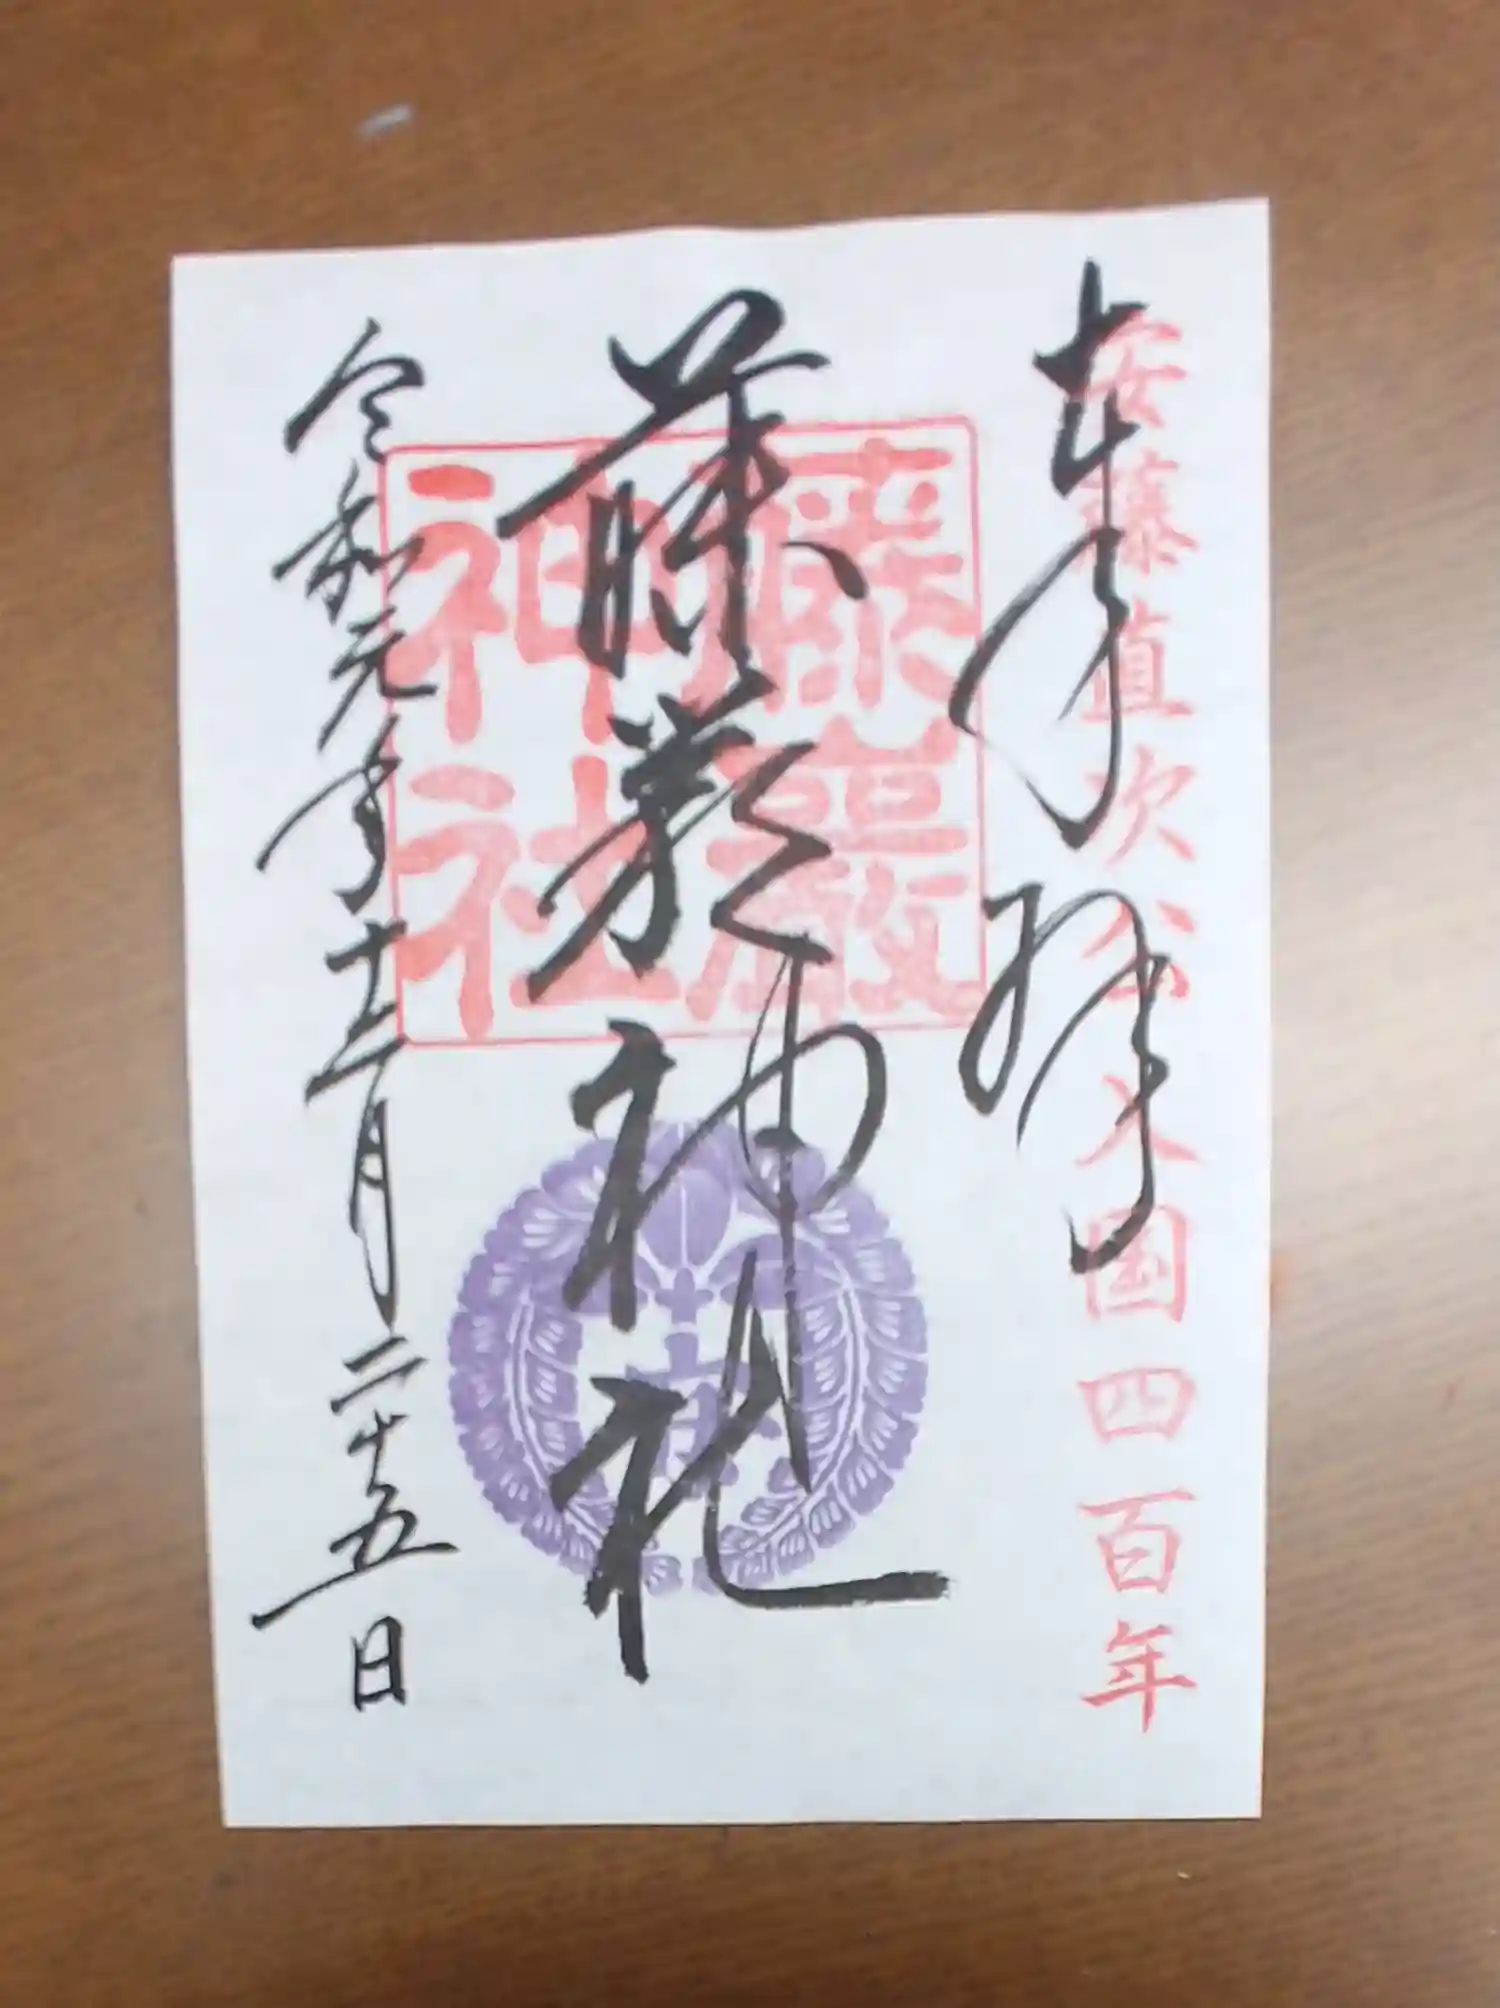 奉拝
安藤直次公入国四百年
藤巖神社
藤巖神社
令和元年十二月二十五日